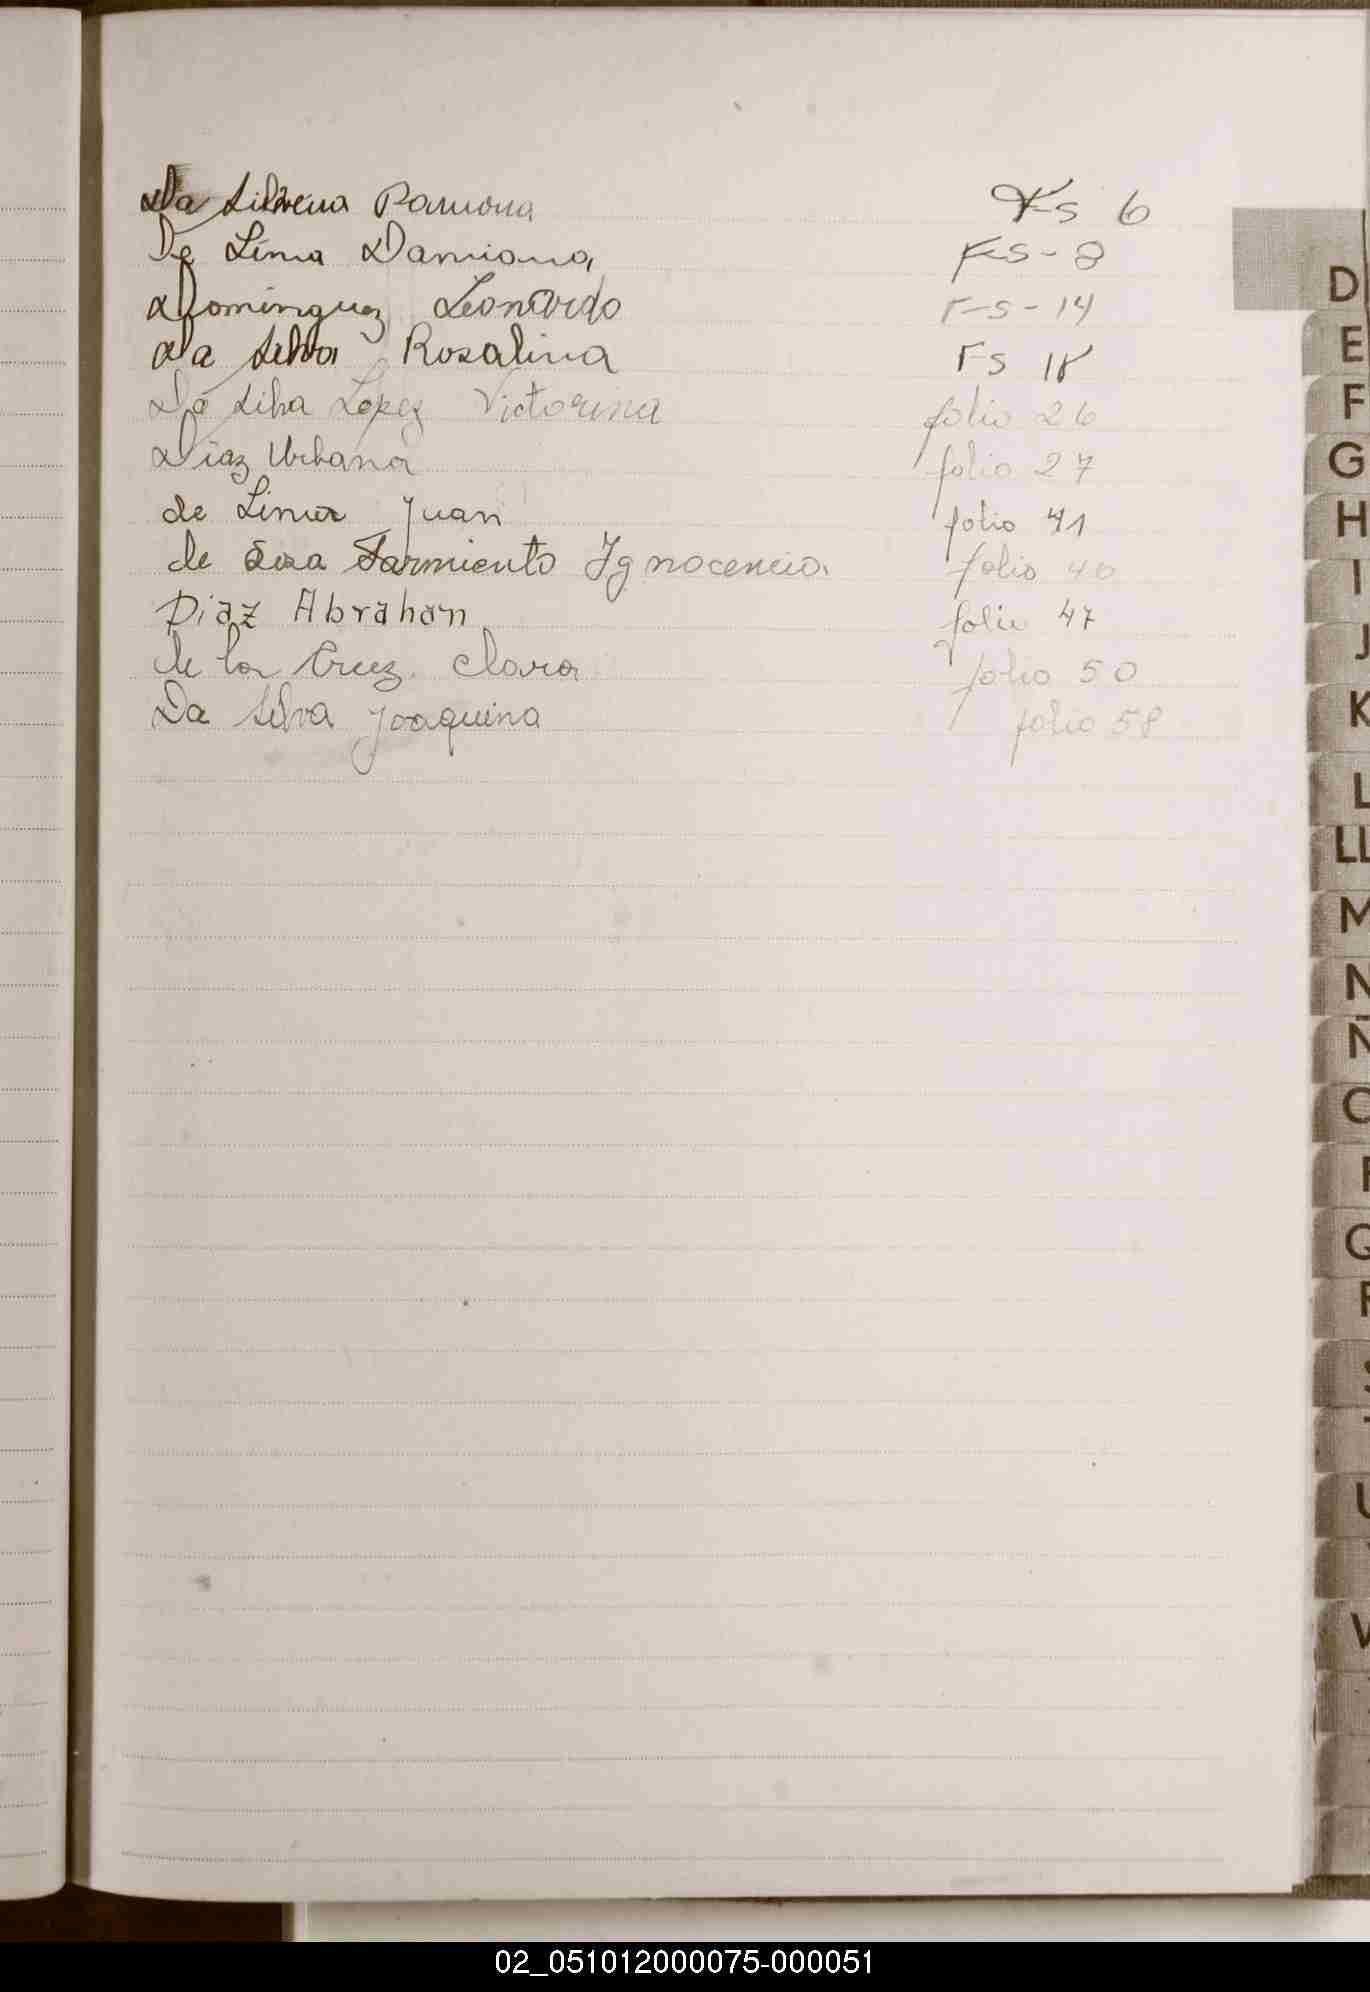 Da Silveira Ramona Fs 6
De Lima Damiana Fs - 8
Dominguez Leonardo Fs - 14
Da Silva Rosalina Fs 18
Da Silva Lopez Victorina folio 26
Diaz Urbana folio 27
de Lima Juan folio 41
de Sarmiento Ygnocencia folio 40
Diaz Abrahan folio 47
de la Cruz Clara folio 50
Da Silva Joaquina folio 58
D
E
F
G
H
I
J
K
L
LL
M
N
Q
S
U
02_051012000075-000051